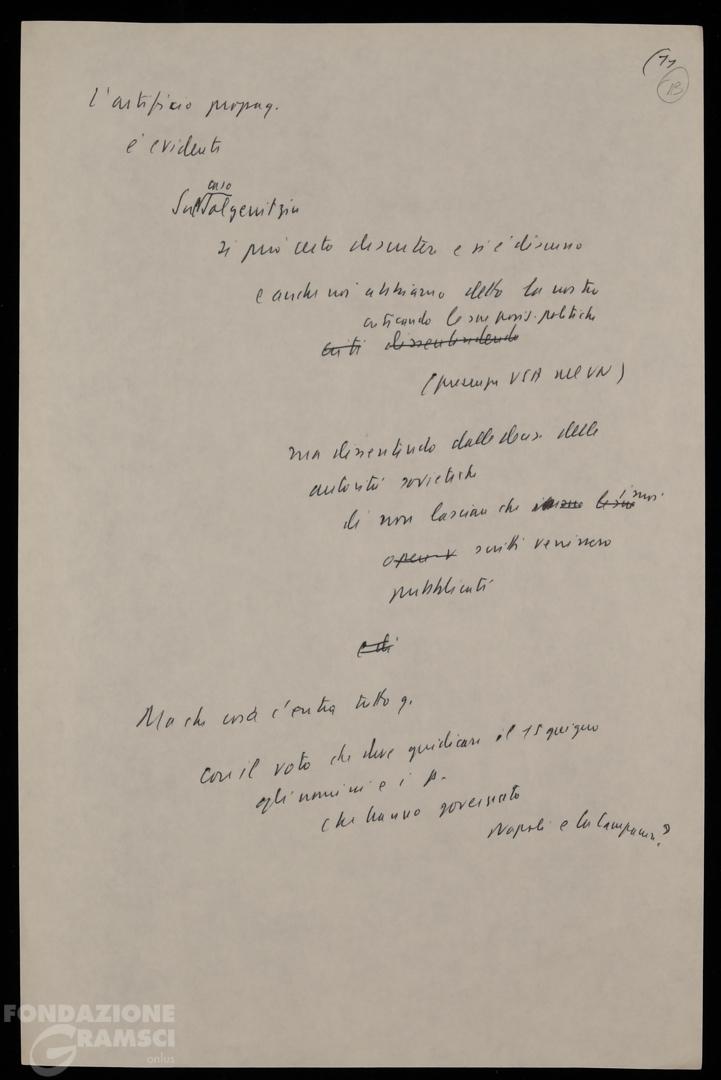 (11
13
l'artificio propag.
è evidente
caso
Sul Solgenitzin
si può certo discutere e si è discusso
e anche noi abbiamo detto la nostra
criticando le sue posiz. politiche
criti dissentendo
(presenza USA nel VN)
ma dissentendo dalle decis. delle
autorità sovietiche
di non lasciare che le sue i suoi
opere scritti venissero
pubblicati
e di
Ma che cosa c'entra tutto q.
con il voto che deve giudicare il 15 giugno
gli uomini e i p.
che hanno governato
Napoli e la Campania?
FONDAZIONE
GRAMSCI
onlus